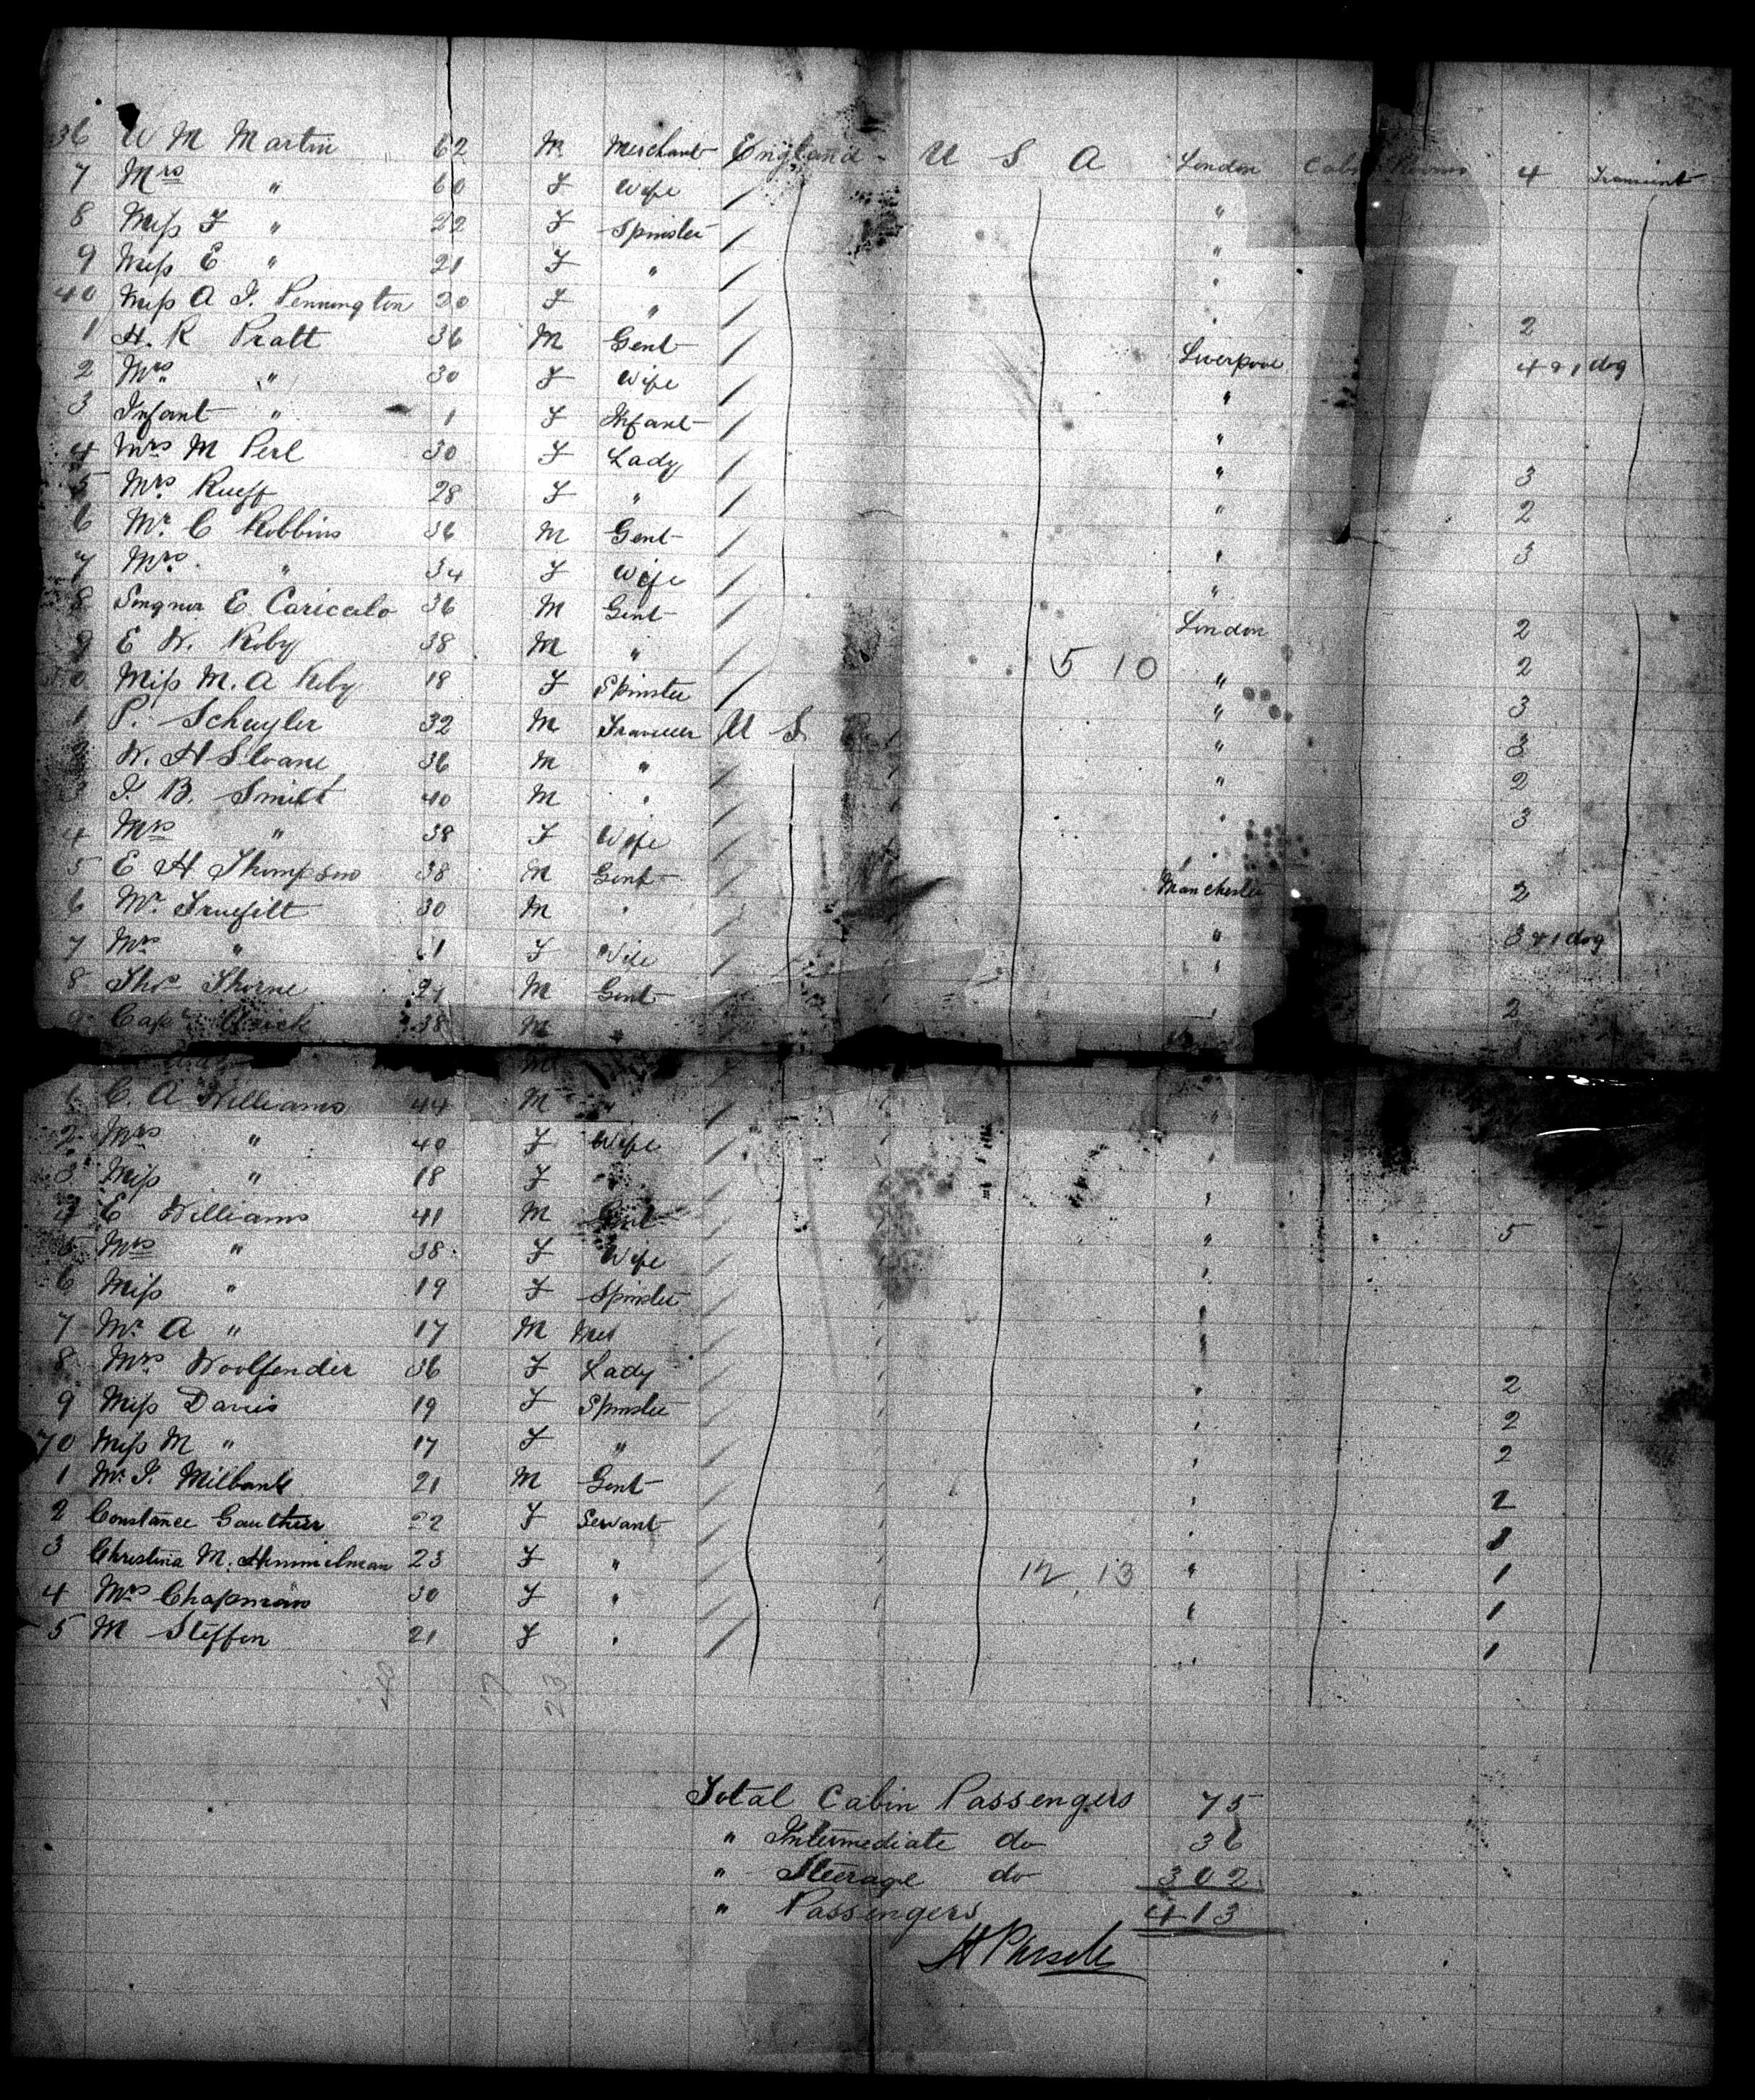 36 W M Martin 62 M Merchant England U S A London Cabin Rooms 4 Transient
7 Mrs " 60 F Wife / "
8 Miss F " 22 F Spinster / "
9 Miss E " 21 F " / "
40 Miss A I. Pennington 20 F " / " 2
1 H. K Pratt 36 M Gent / Liverpool 4 & 1 dog
2 Mrs " 30 F Wife / "
3 Infant " 1 F Infant / "
4 Mrs M Perl 30 F Lady / " 3
5 Mrs Rueff 28 F " / " 2
6 Mr. C Robbins 36 M Gent / " 3
7 Mrs. " 34 F Wife / "
8 E. 36 M Gent / London 2
9 E W. 38 M " / 5 10 " 2
50 Miss M. A 18 F Spinster / " 3
1 P. Schuyler 32 M Traveller U S " 3
2 W. H Sloane 36 M " / " 2
3 B. Smith 40 M " / " 3
4 Mrs " 38 F Wife / "
5 E H Thompson 38 M Gent / Manchester 2
6 Mr Truefitt 30 M " / " 3 & 1 dog
7 Mrs " F Wife / "
8 Thos Thorne 21 M Gent / " 2
9 Capt 38 M "
M
C. A Williams 44 M " / "
2 Mrs " 40 F Wife / "
3 Miss " 18 F " / "
4 E Williams 41 M Gent / " 5
5 Mrs " 38 F Wife / "
6 Miss " 19 F Spinster / "
7 Mr A " 17 M / "
8 Mrs Woolfender 36 F Lady / " 2
9 Miss Davis 19 F Spinster / " 2
70 Miss M " 17 F " / " 2
1 Mr. Milbank 21 M Gent / " 2
2 Constance Gauthier 22 F Servant / " 1
3 Christina M. Himmelman 23 F " / 12, 13 " 1
4 Mrs Chapman 30 F " / " 1
5 M Steffen 21 F " / " 1
Total Cabin Passengers 75
" Intermediate do 36
" Steerage do 302
" Passengers 413